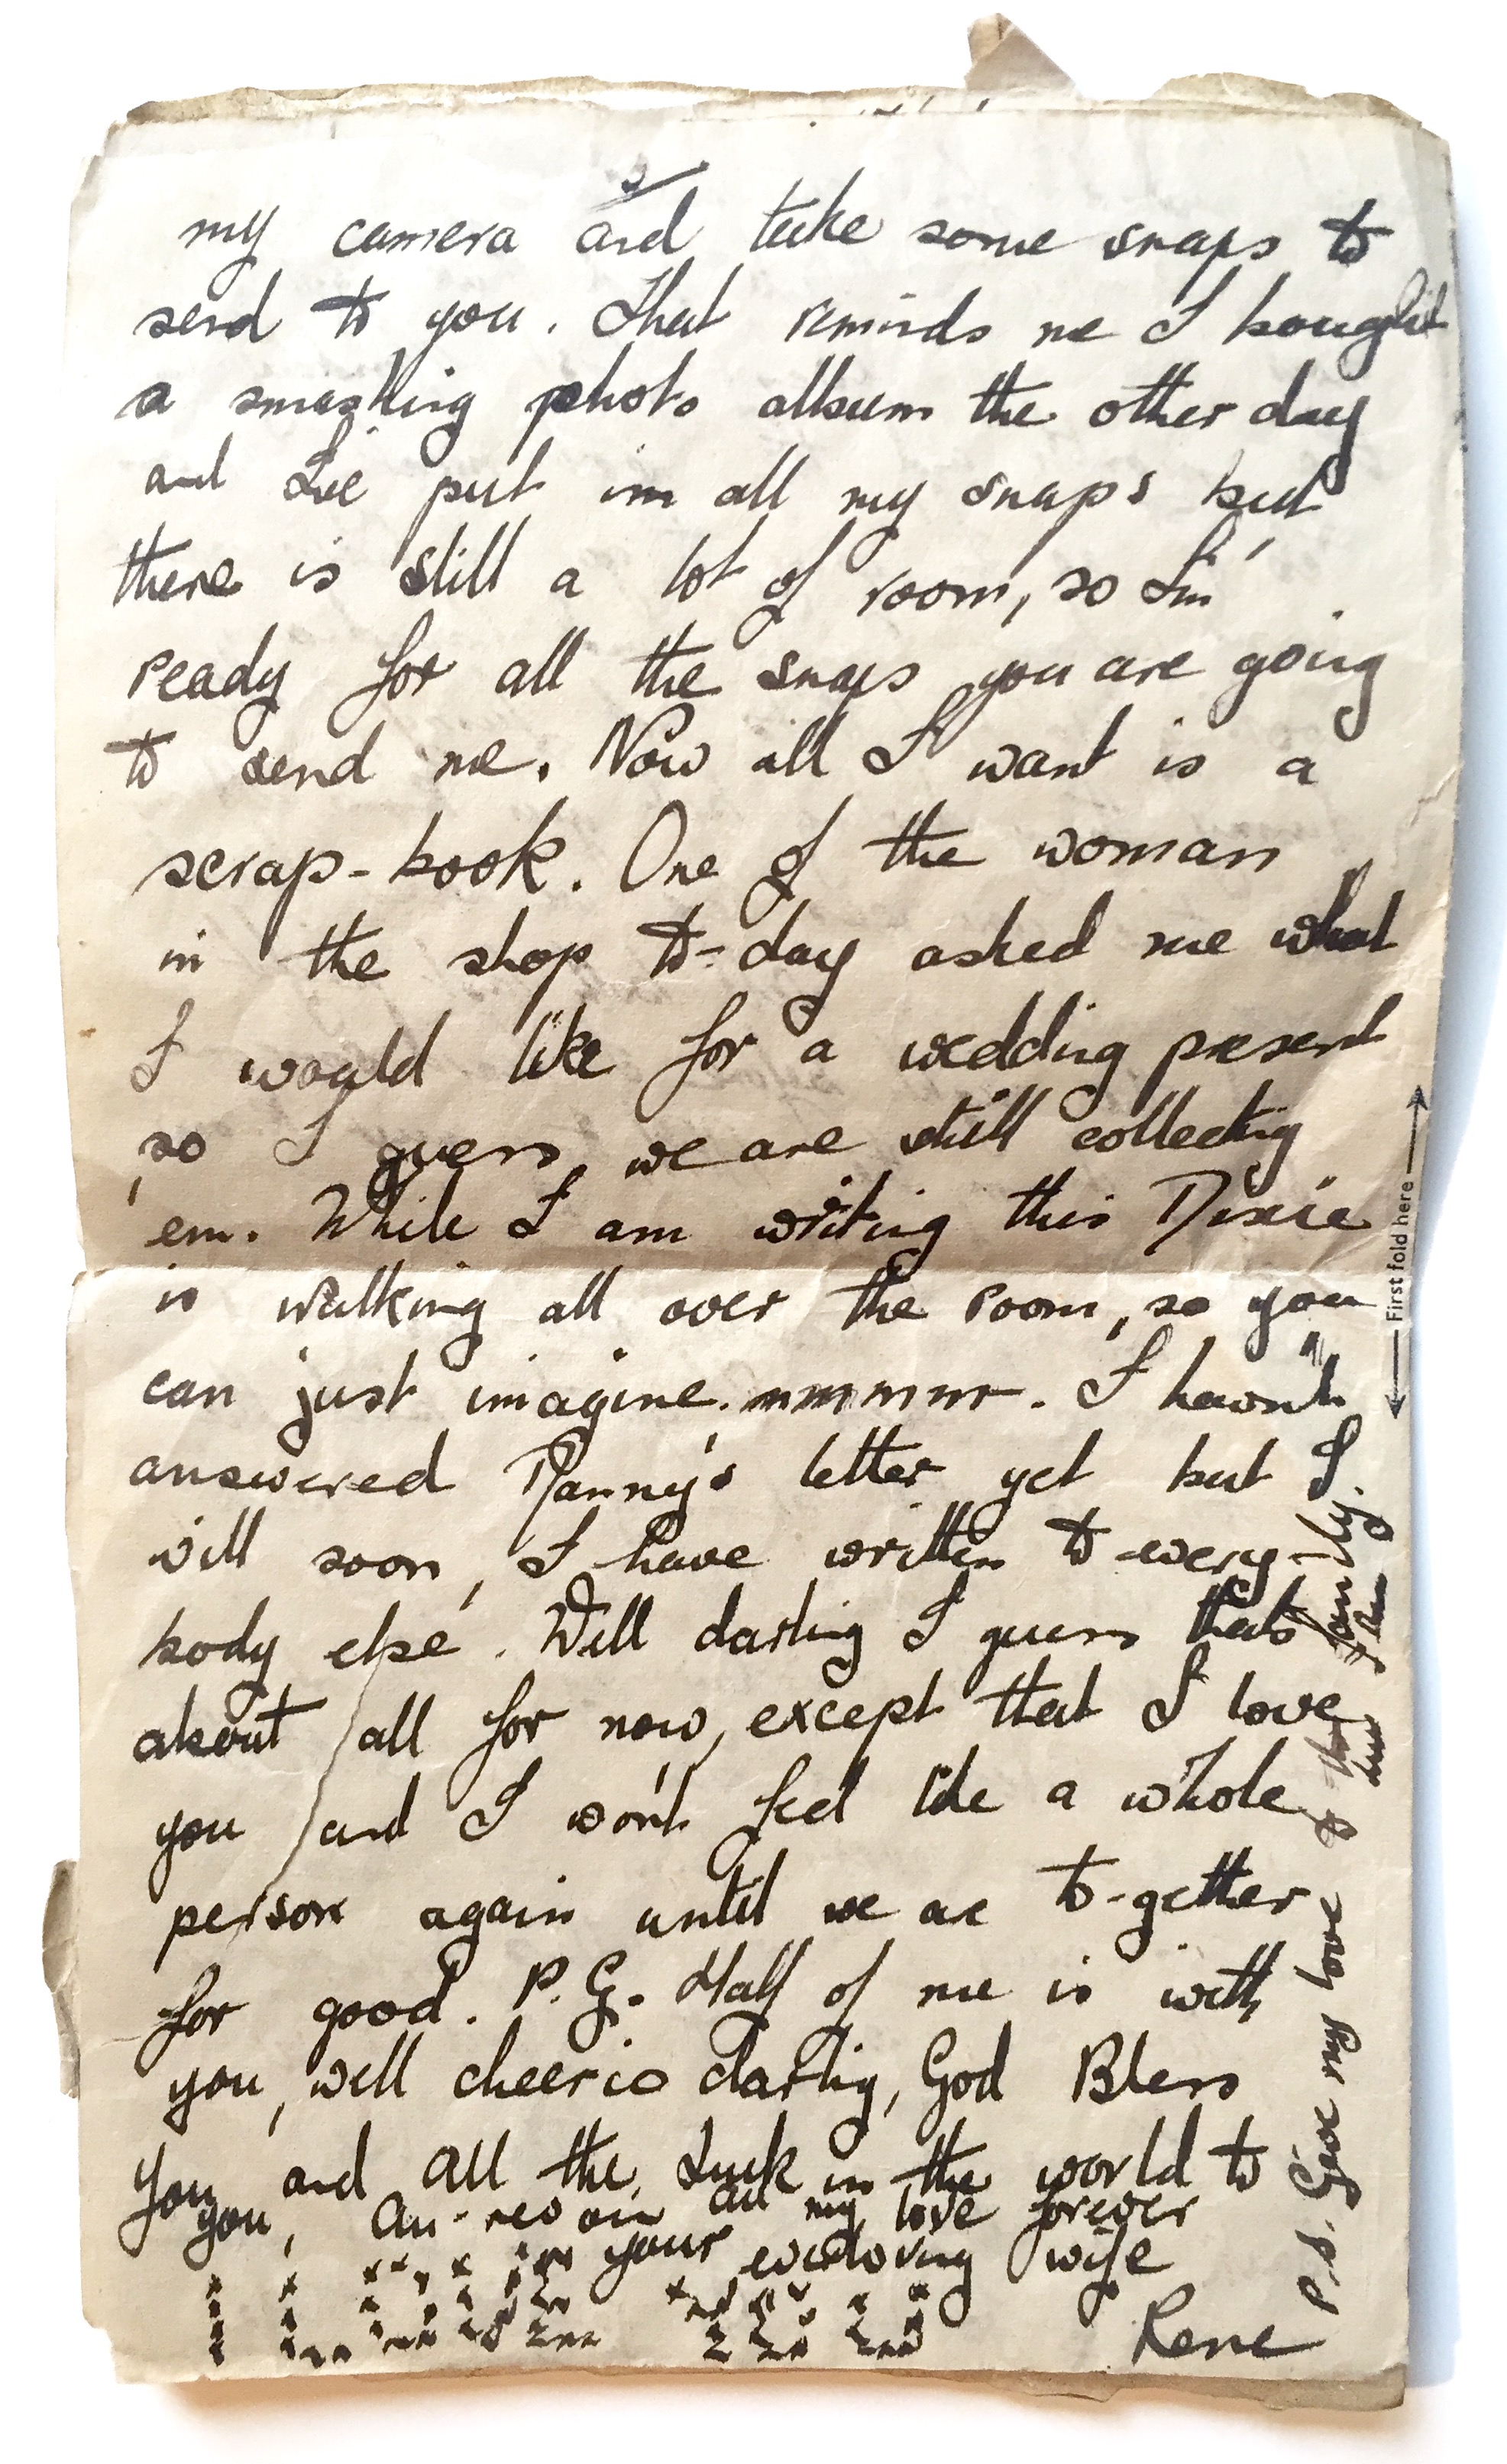 my camera and take some snaps to
send to you. That reminds me I bought
a smashing photo album the other day
and I've put im all my snaps but
there is still a lot of room, so I'm
ready for all the snaps you are going
to send me. Now all I want is a
scrap-book. One of the woman
in the shop to-day asked me what
I would like for a wedding present
so I guess, we are still collecting
'em. While I am writing this Dixie
is walking all over the room, so you
can just imagine. mmmmm. I havn't
answered Danny's letter yet but I
will soon, I have written to every-
body else. Well darling I guess thats
about all for now, except that I love
you and I won't feel like a whole
person again until we are to-gether
for good. P.G. Half of me is with
you, well cheerio darling, God Bless
you, and all the Luck in the world to
you, Au-revoir all my love forever
your everloving wife
I LOVE YOU
Rene
P.S. Give my love to the family.
First fold here